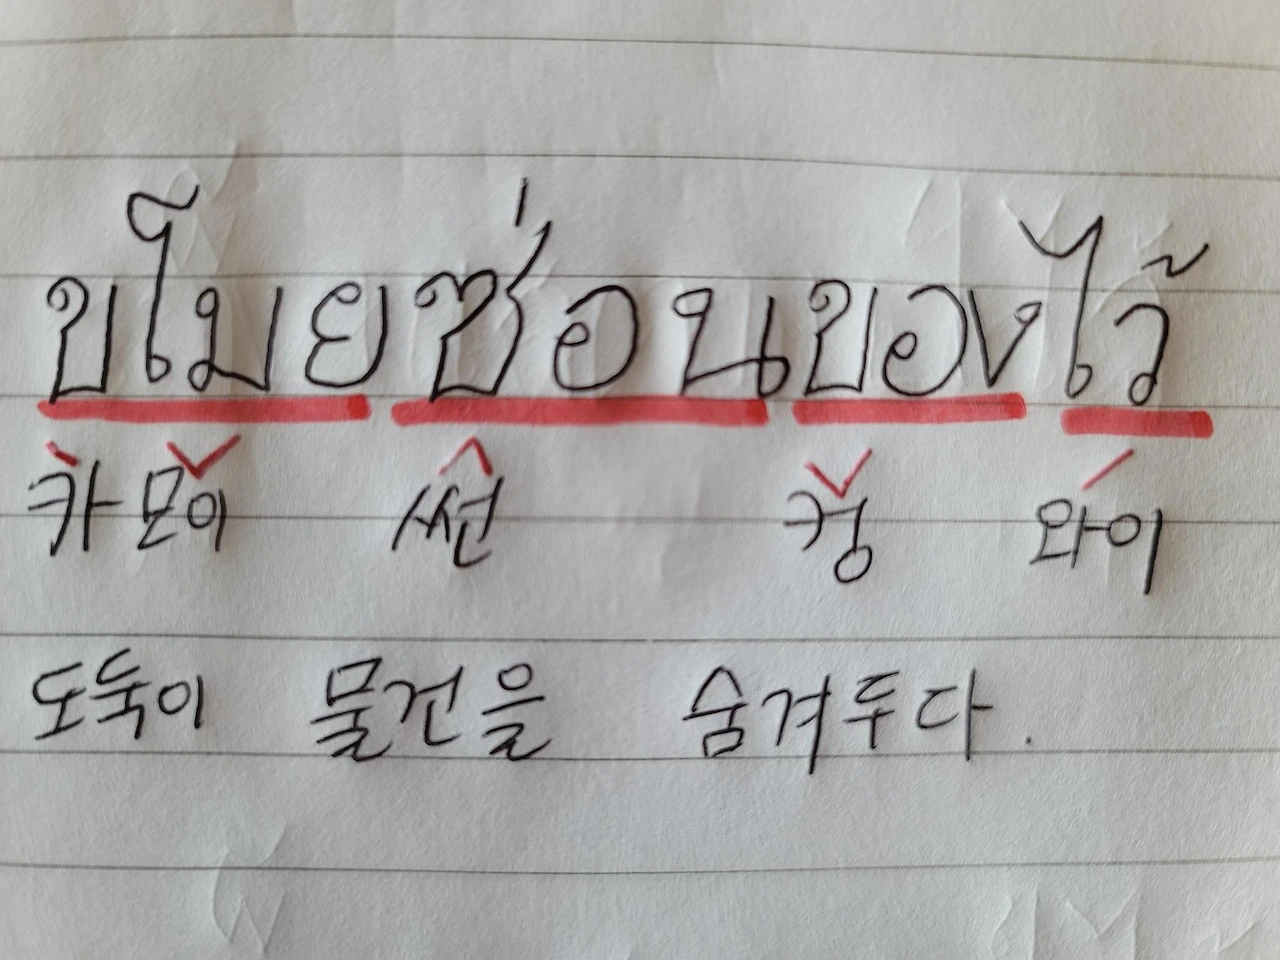 ขโมยซ่อนของไว้
카모이 썬 컹 와이
도둑이 물건을 숨겨두다.